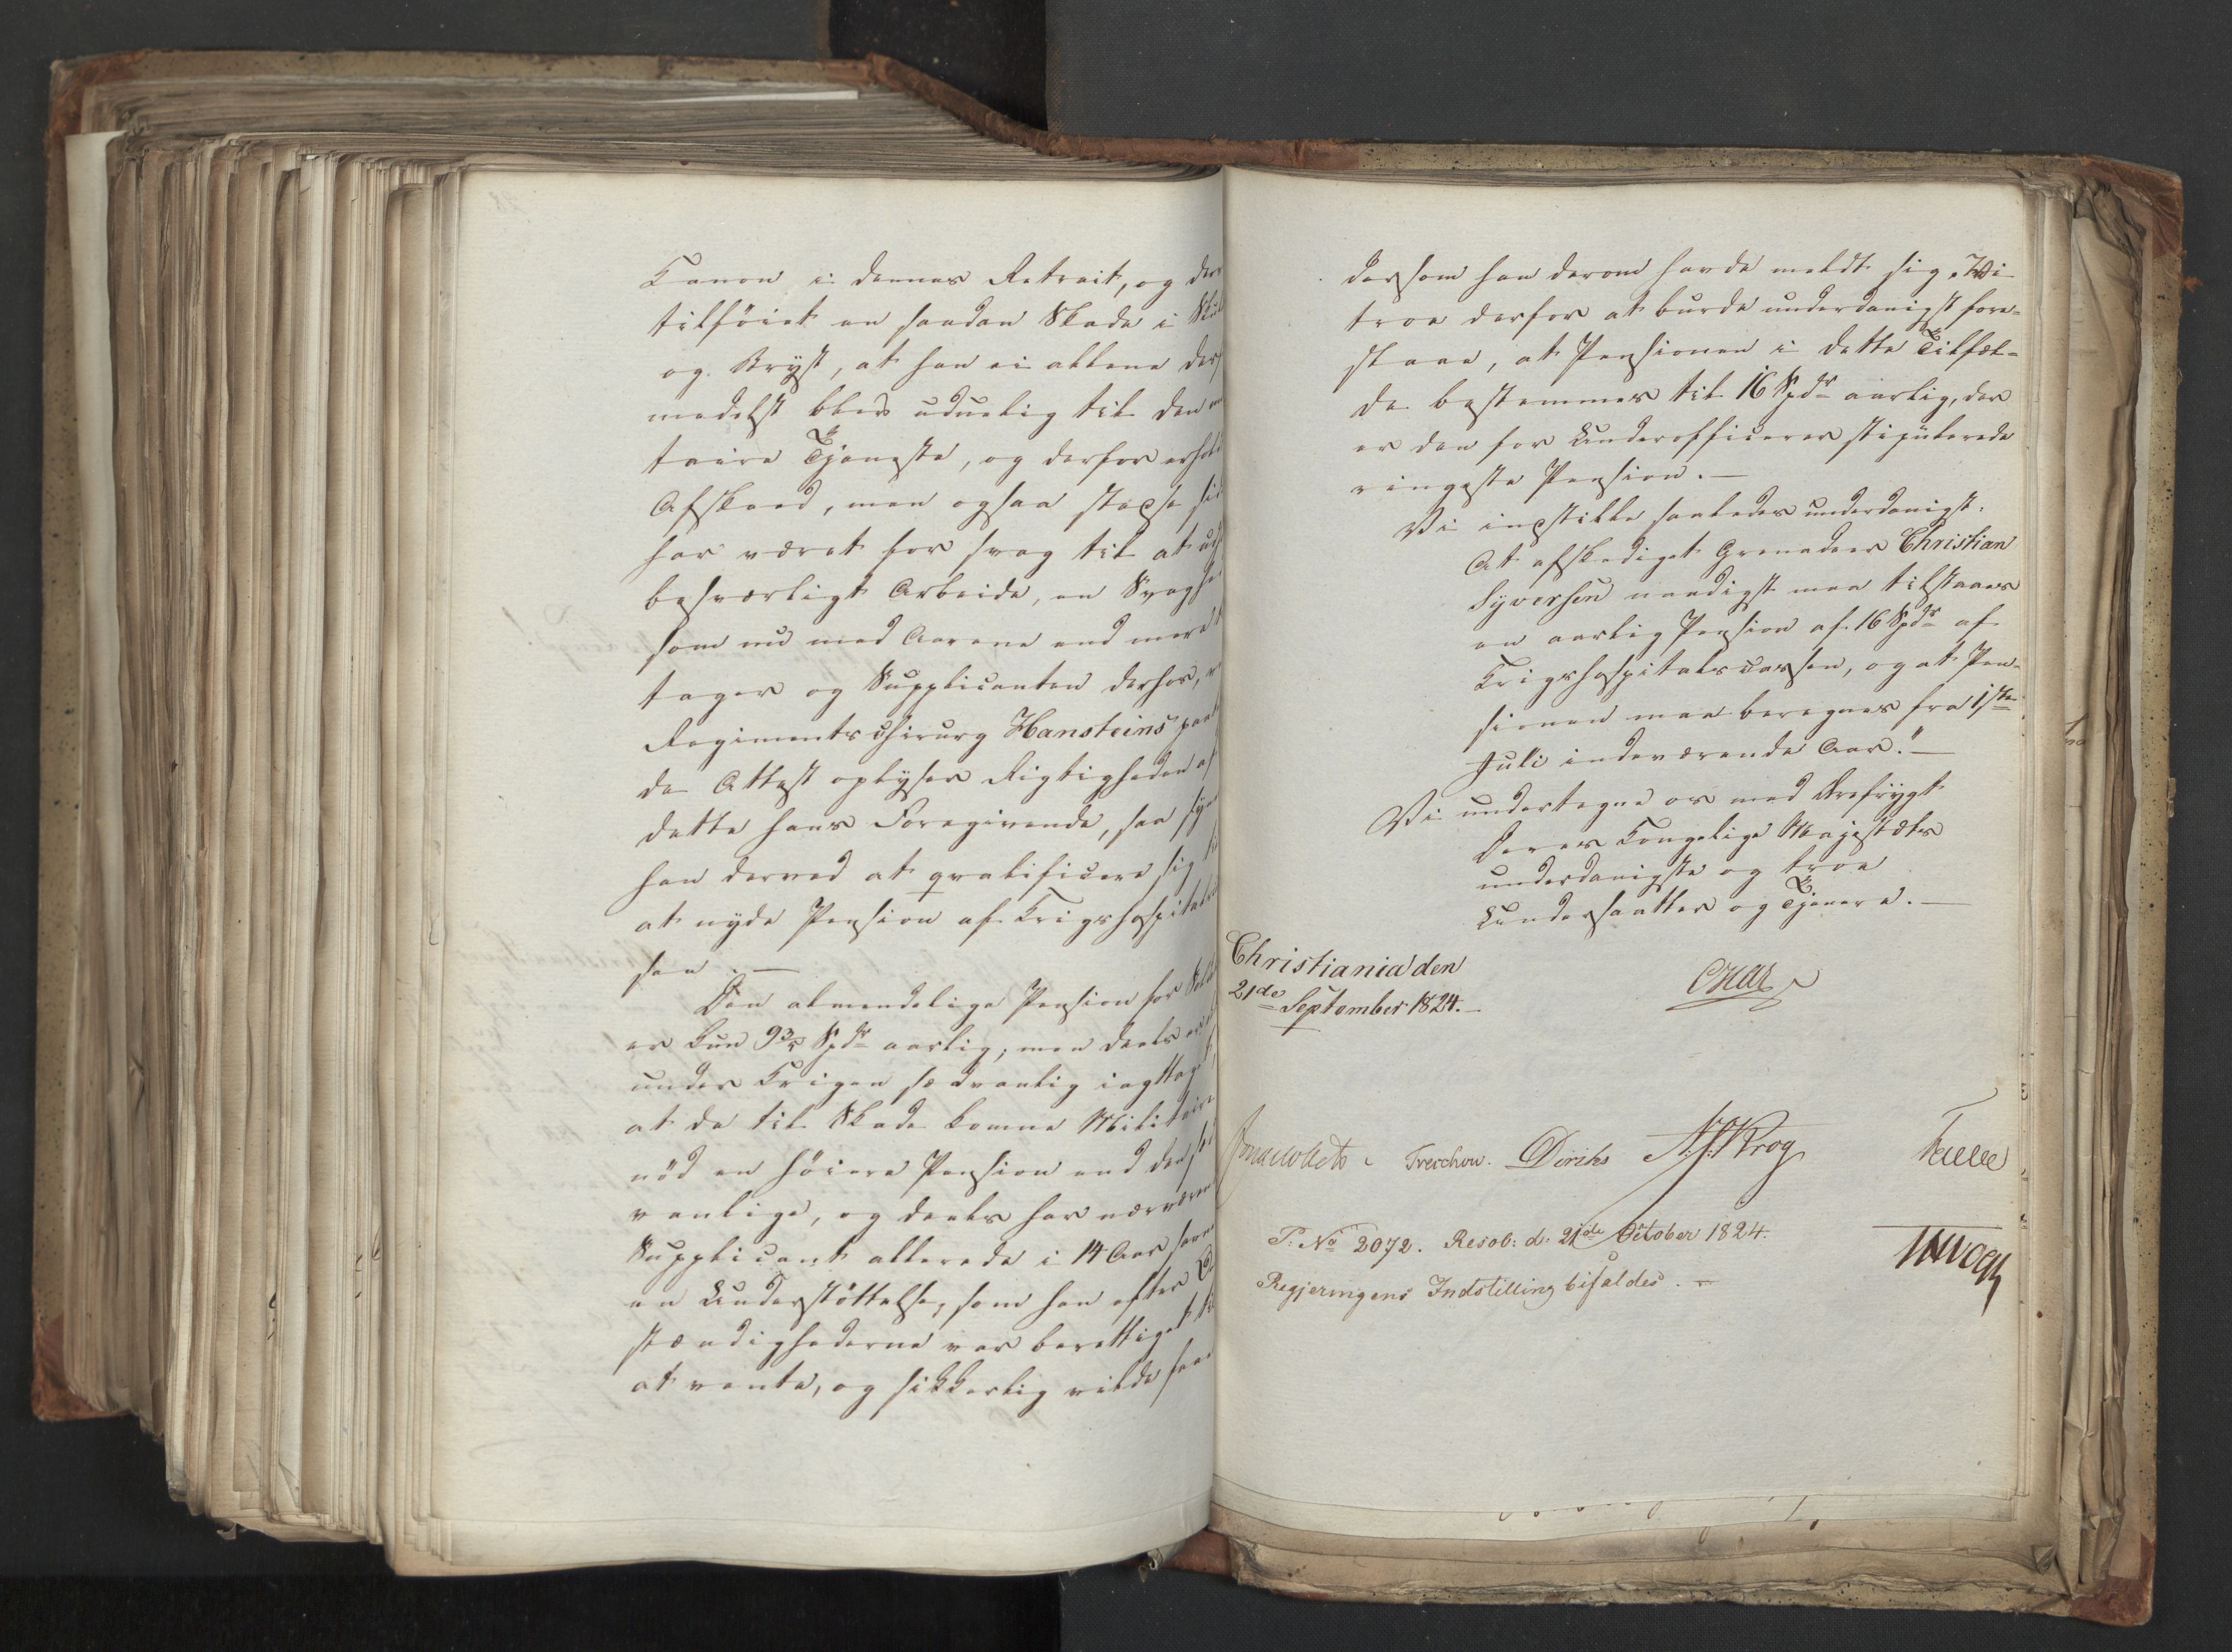 Kanon i dennes Retrait, og der
tilføiet en saadan Skade i
og Bryst, at han ei allene der
medelst blev uduelig til den
taire Tjeneste, og derfor erhol
Afskeed, men ogsaa stedse
har været for svag til at
besværligt Arbeide, en Svaghe
som nu med Aarene end mere
tager og Supplicanten derhos,
Regimentschirurg Hansteins
de Attest oplyser Rigtigheden af
dette hans Foregivende, saa syn
han derved at qvalificere sig
at nyde Pension af Krigshospitals
sen. —
Den almindelige Pension for
er kun 9 3/5 Spdr aarlig; men deels
under Krigen sædvanlig iagttag
at de til Skade komne Militaire
nød en høiere Pension end den
vanlige, og deels har nærværen
Supplicant allerede i 14 Aar
en Understøttelse, som han efter
stændighederne var berettiget til
at vente, og sikkerlig vilde faae
dersom han derom havde meldt sig. Vi
troe derfor at burde underdanigst fore-
slaae, at Pensionen i dette Tilfæl-
de bestemmes til 16 Spdr aarlig, der
er den for Underofficerer stipulerede
ringeste Pension. —
Vi indstille saaledes underdanigst:
At afskediget Grenadeer Christian
Syversen naadigst maa tilstaaes
en aarlig Pension af 16 Spdr af
Krigshospitalscassen, og at Pen-
sionen maa beregnes fra 1ste
Juli indeværende Aar." —
Vi undertegne os med Ærefrygt
Deres Kongelige Majestæts
underdanigste og troe
Undersaatter og Tjenere. —
Christiania den
21de September 1824. —
Treschow. Diriks
Krog
P: No 2072. Resol: d: 21de October 1824.
Regjeringens Indstilling bifaldes. —